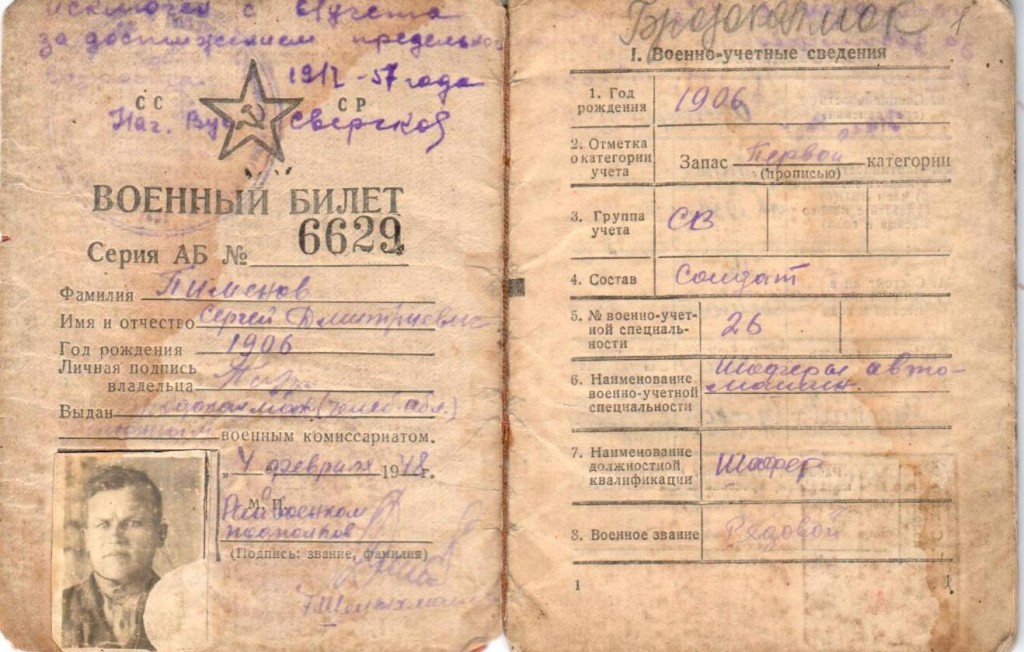 исключен с учета
за достижением предельного
возраста.
19/2-57 года
СС СР
Нач. Сверчков
ВОЕННЫЙ БИЛЕТ
Серия АБ № 6629
Фамилия Пименов
Имя и отчество Сергей Дмитриевич
Год рождения 1906
Личная подпись
владельца
Выдан
военным комиссариатом.
„4 февраля 1948г.
М. П.
Райвоенком
подполков
(Подпись: звание, фамилия)
Бродокалмак
1
I. Военно-учетные сведения
1. Год
рождения
1906
2. Отметка
о категории
учета
Запас Первой категории
(прописью)
3. Группа
учета
СВ
4. Состав Солдат
5. № военно-учет-
ной специаль-
ности
26
6. Наименование
военно-учетной
специальности
Шоферы авто-
машин.
7. Наименование
должностной
квалификации
Шофер
8. Военное звание Рядовой
1 1